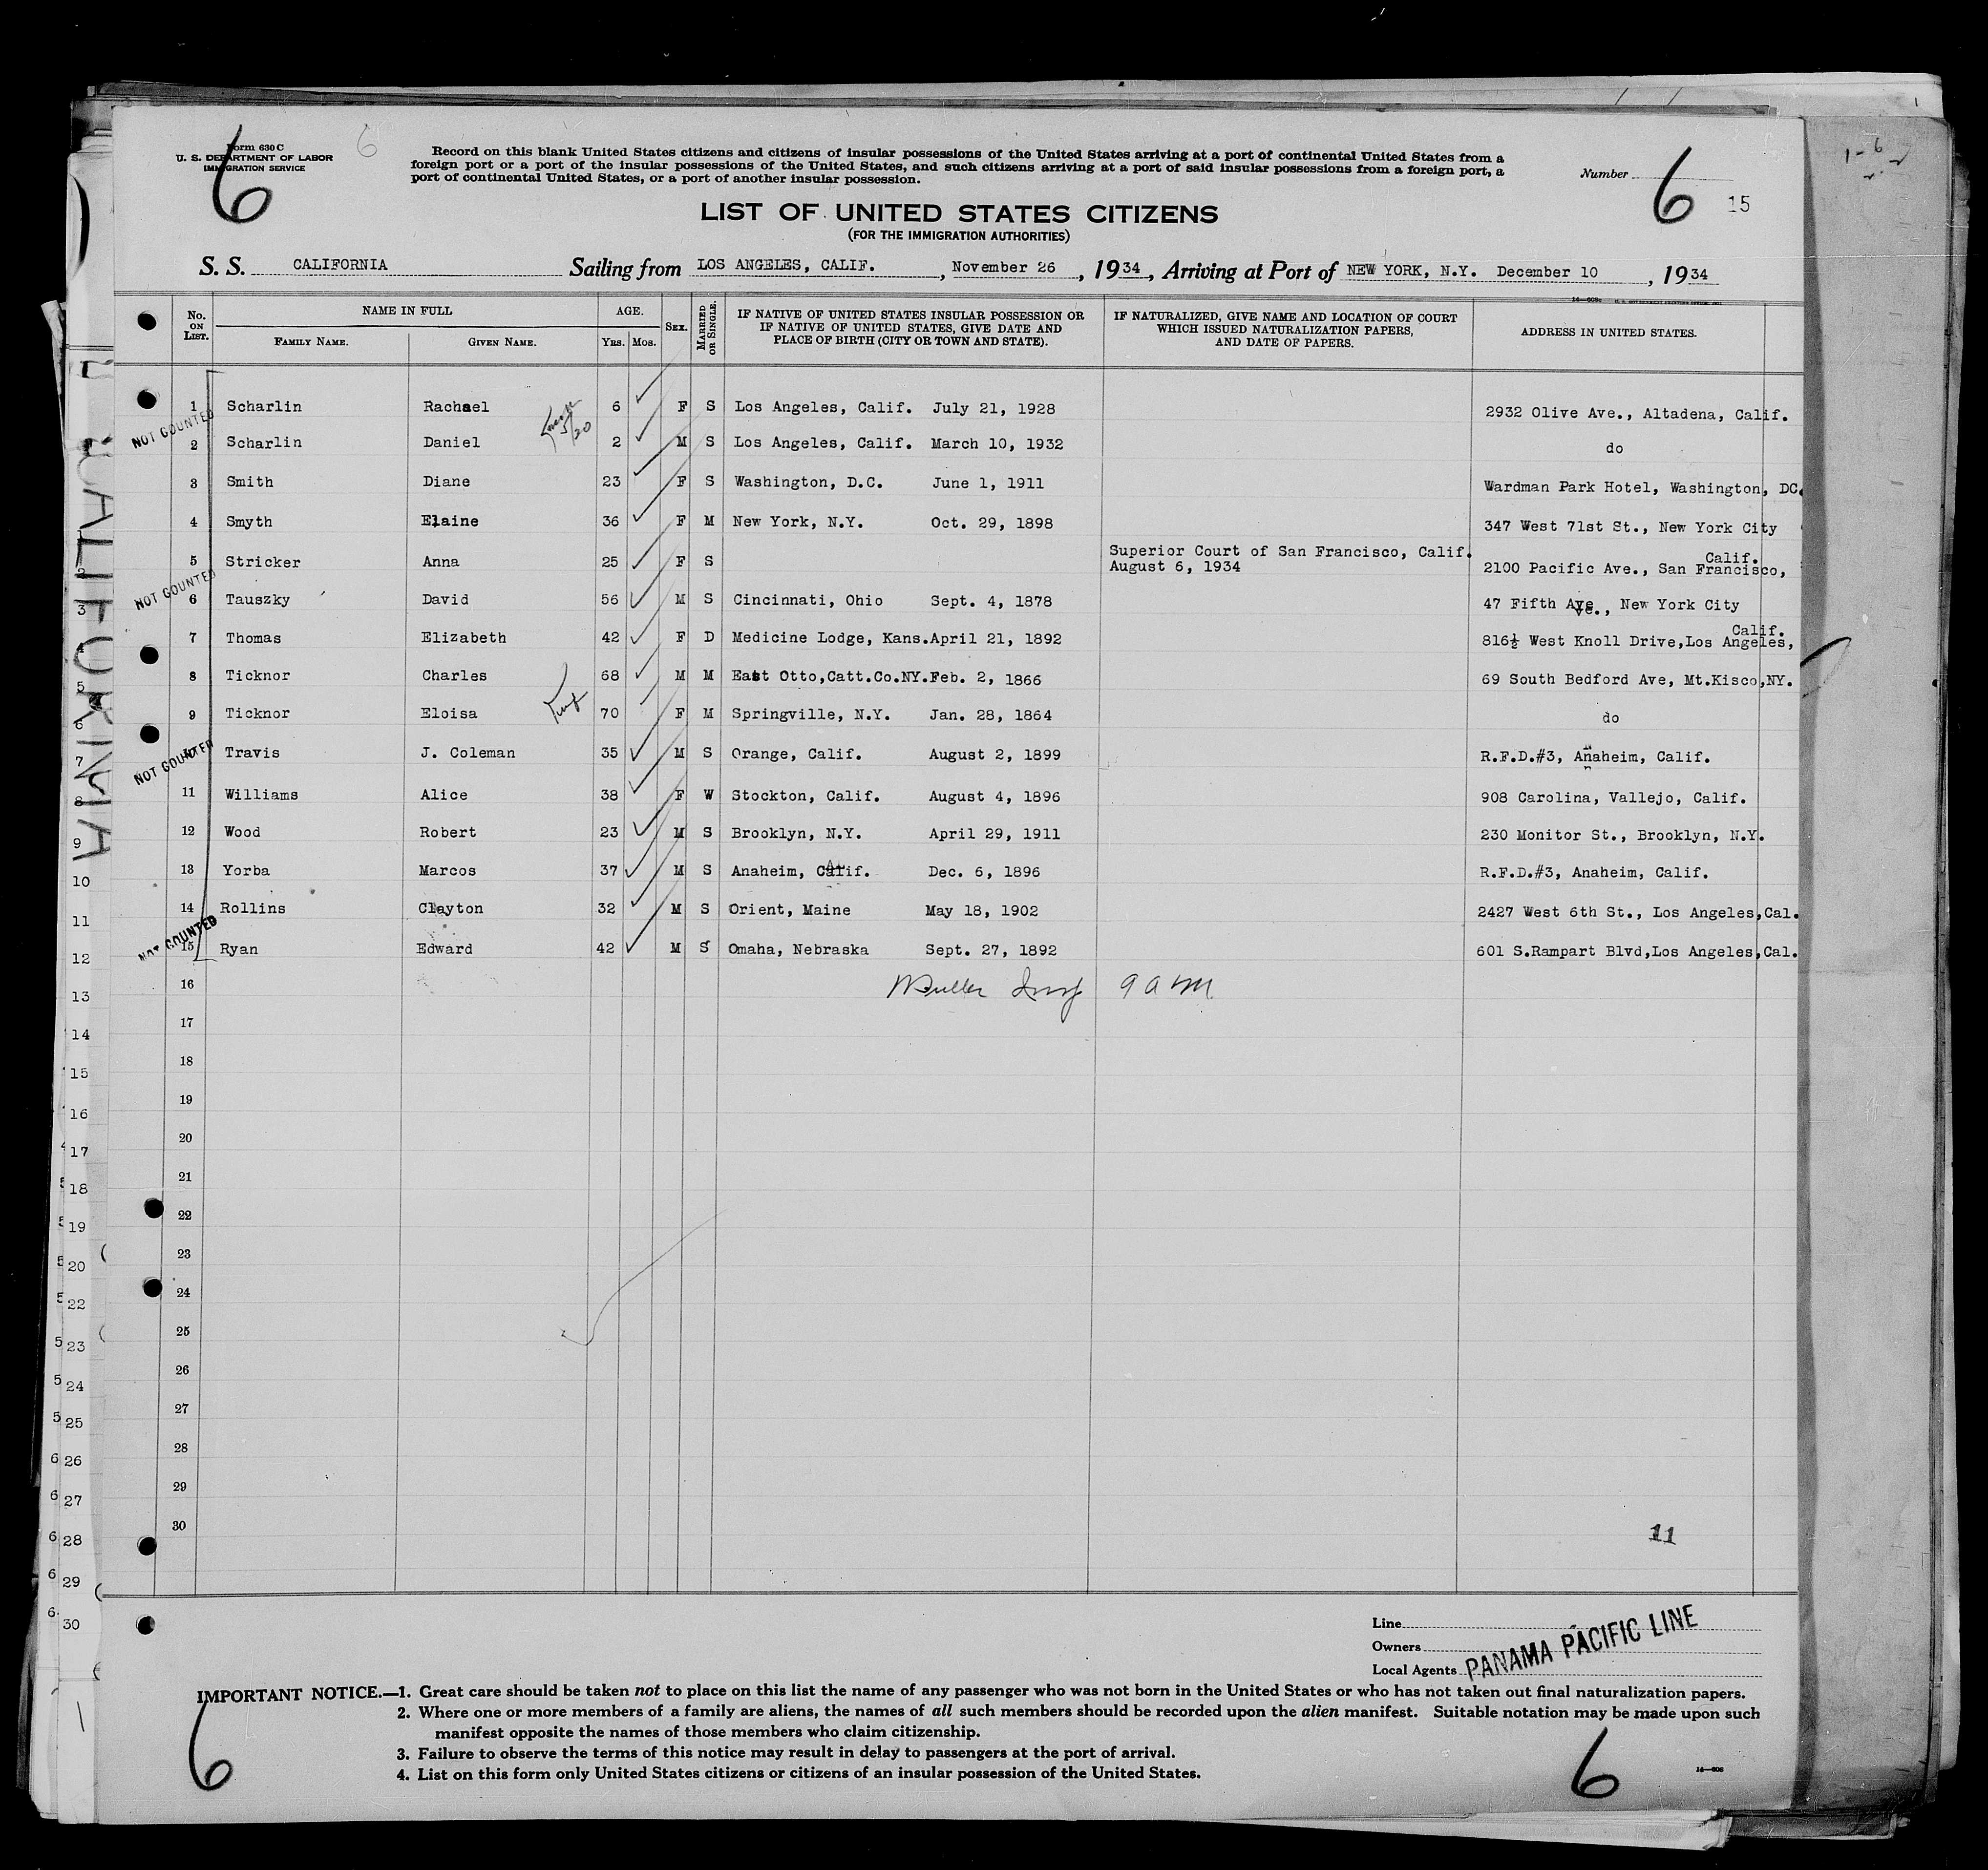 Form 630 C
U. S. DEPARTMENT OF LABOR
IMMIGRATION SERVICE
6
6
Record on this blank United States citizens and citizens of insular possessions of the United States arriving at a port of continental United States from a
foreign port or a port of the insular possessions of the United States, and such citizens arriving at a port of said insular possessions from a foreign port, a
port of continental United States, or a port of another insular possession.
Number
6
15
LIST OF UNITED STATES CITIZENS
(FOR THE IMMIGRATION AUTHORITIES)
S. S. CALIFORNIA Sailing from LOS ANGELES, CALIF., November 26, 1934, Arriving at Port of NEW YORK, N.Y. December 10, 1934
No. ON LIST. NAME IN FULL FAMILY NAME. GIVEN NAME. AGE. YRS. MOS. SEX. MARRIED OR SINGLE. IF NATIVE OF UNITED STATES INSULAR POSSESSION OR IF NATIVE OF UNITED STATES, GIVE DATE AND PLACE OF BIRTH (CITY OR TOWN AND STATE). IF NATURALIZED, GIVE NAME AND LOCATION OF COURT WHICH ISSUED NATURALIZATION PAPERS, AND DATE OF PAPERS. ADDRESS IN UNITED STATES.
1 Scharlin Rachael 6 F S Los Angeles, Calif. July 21, 1928 2932 Olive Ave., Altadena, Calif.
NOT COUNTED
2 Scharlin Daniel 2 M S Los Angeles, Calif. March 10, 1932 do
3 Smith Diane 23 F S Washington, D.C. June 1, 1911 Wardman Park Hotel, Washington, DC.
4 Smyth Elaine 36 F M New York, N.Y. Oct. 29, 1898 347 West 71st St., New York City
5 Stricker Anna 25 F S Superior Court of San Francisco, Calif. August 6, 1934 2100 Pacific Ave., San Francisco, Calif.
NOT COUNTED
6 Tauszky David 56 M S Cincinnati, Ohio Sept. 4, 1878 47 Fifth Ave., New York City
7 Thomas Elizabeth 42 F D Medicine Lodge, Kans. April 21, 1892 816½ West Knoll Drive, Los Angeles, Calif.
8 Ticknor Charles 68 M M East Otto, Catt.Co.NY. Feb. 2, 1866 69 South Bedford Ave, Mt.Kisco, NY.
9 Ticknor Eloisa 70 F M Springville, N.Y. Jan. 28, 1864 do
NOT COUNTED
10 Travis J. Coleman 35 M S Orange, Calif. August 2, 1899 R.F.D.#3, Anaheim, Calif.
11 Williams Alice 38 F W Stockton, Calif. August 4, 1896 908 Carolina, Vallejo, Calif.
12 Wood Robert 23 M S Brooklyn, N.Y. April 29, 1911 230 Monitor St., Brooklyn, N.Y.
13 Yorba Marcos 37 M S Anaheim, Calif. Dec. 6, 1896 R.F.D.#3, Anaheim, Calif.
14 Rollins Clayton 32 M S Orient, Maine May 18, 1902 2427 West 6th St., Los Angeles, Cal.
NOT COUNTED
15 Ryan Edward 42 M S Omaha, Nebraska Sept. 27, 1892 601 S.Rampart Blvd, Los Angeles, Cal.
16
17
18
19
20
21
22
23
24
25
26
27
28
29
30
11
Line
Owners
Local Agents
PANAMA PACIFIC LINE
IMPORTANT NOTICE.—1. Great care should be taken not to place on this list the name of any passenger who was not born in the United States or who has not taken out final naturalization papers.
2. Where one or more members of a family are aliens, the names of all such members should be recorded upon the alien manifest. Suitable notation may be made upon such
manifest opposite the names of those members who claim citizenship.
3. Failure to observe the terms of this notice may result in delay to passengers at the port of arrival.
4. List on this form only United States citizens or citizens of an insular possession of the United States.
6
6
CALIFORNIA